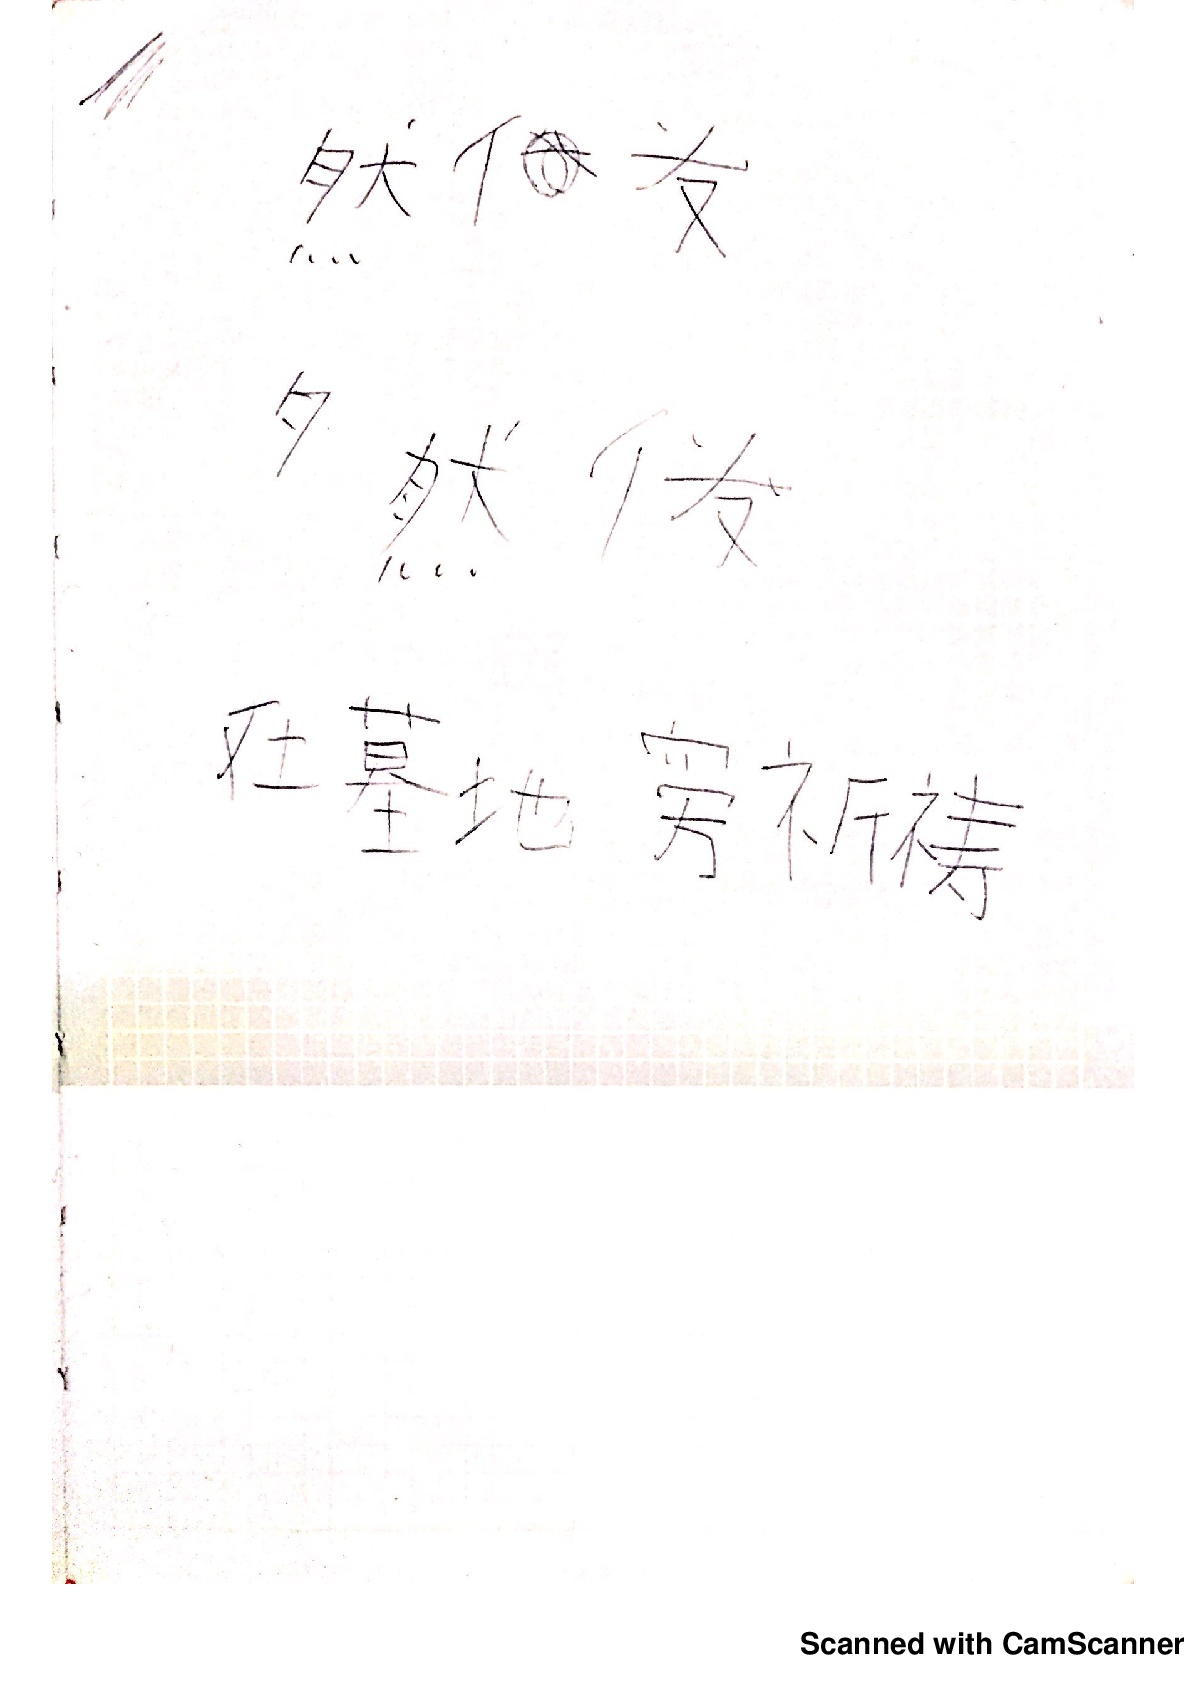 然 发
夕 然
在墓地 旁祈祷
Scanned with CamScanner